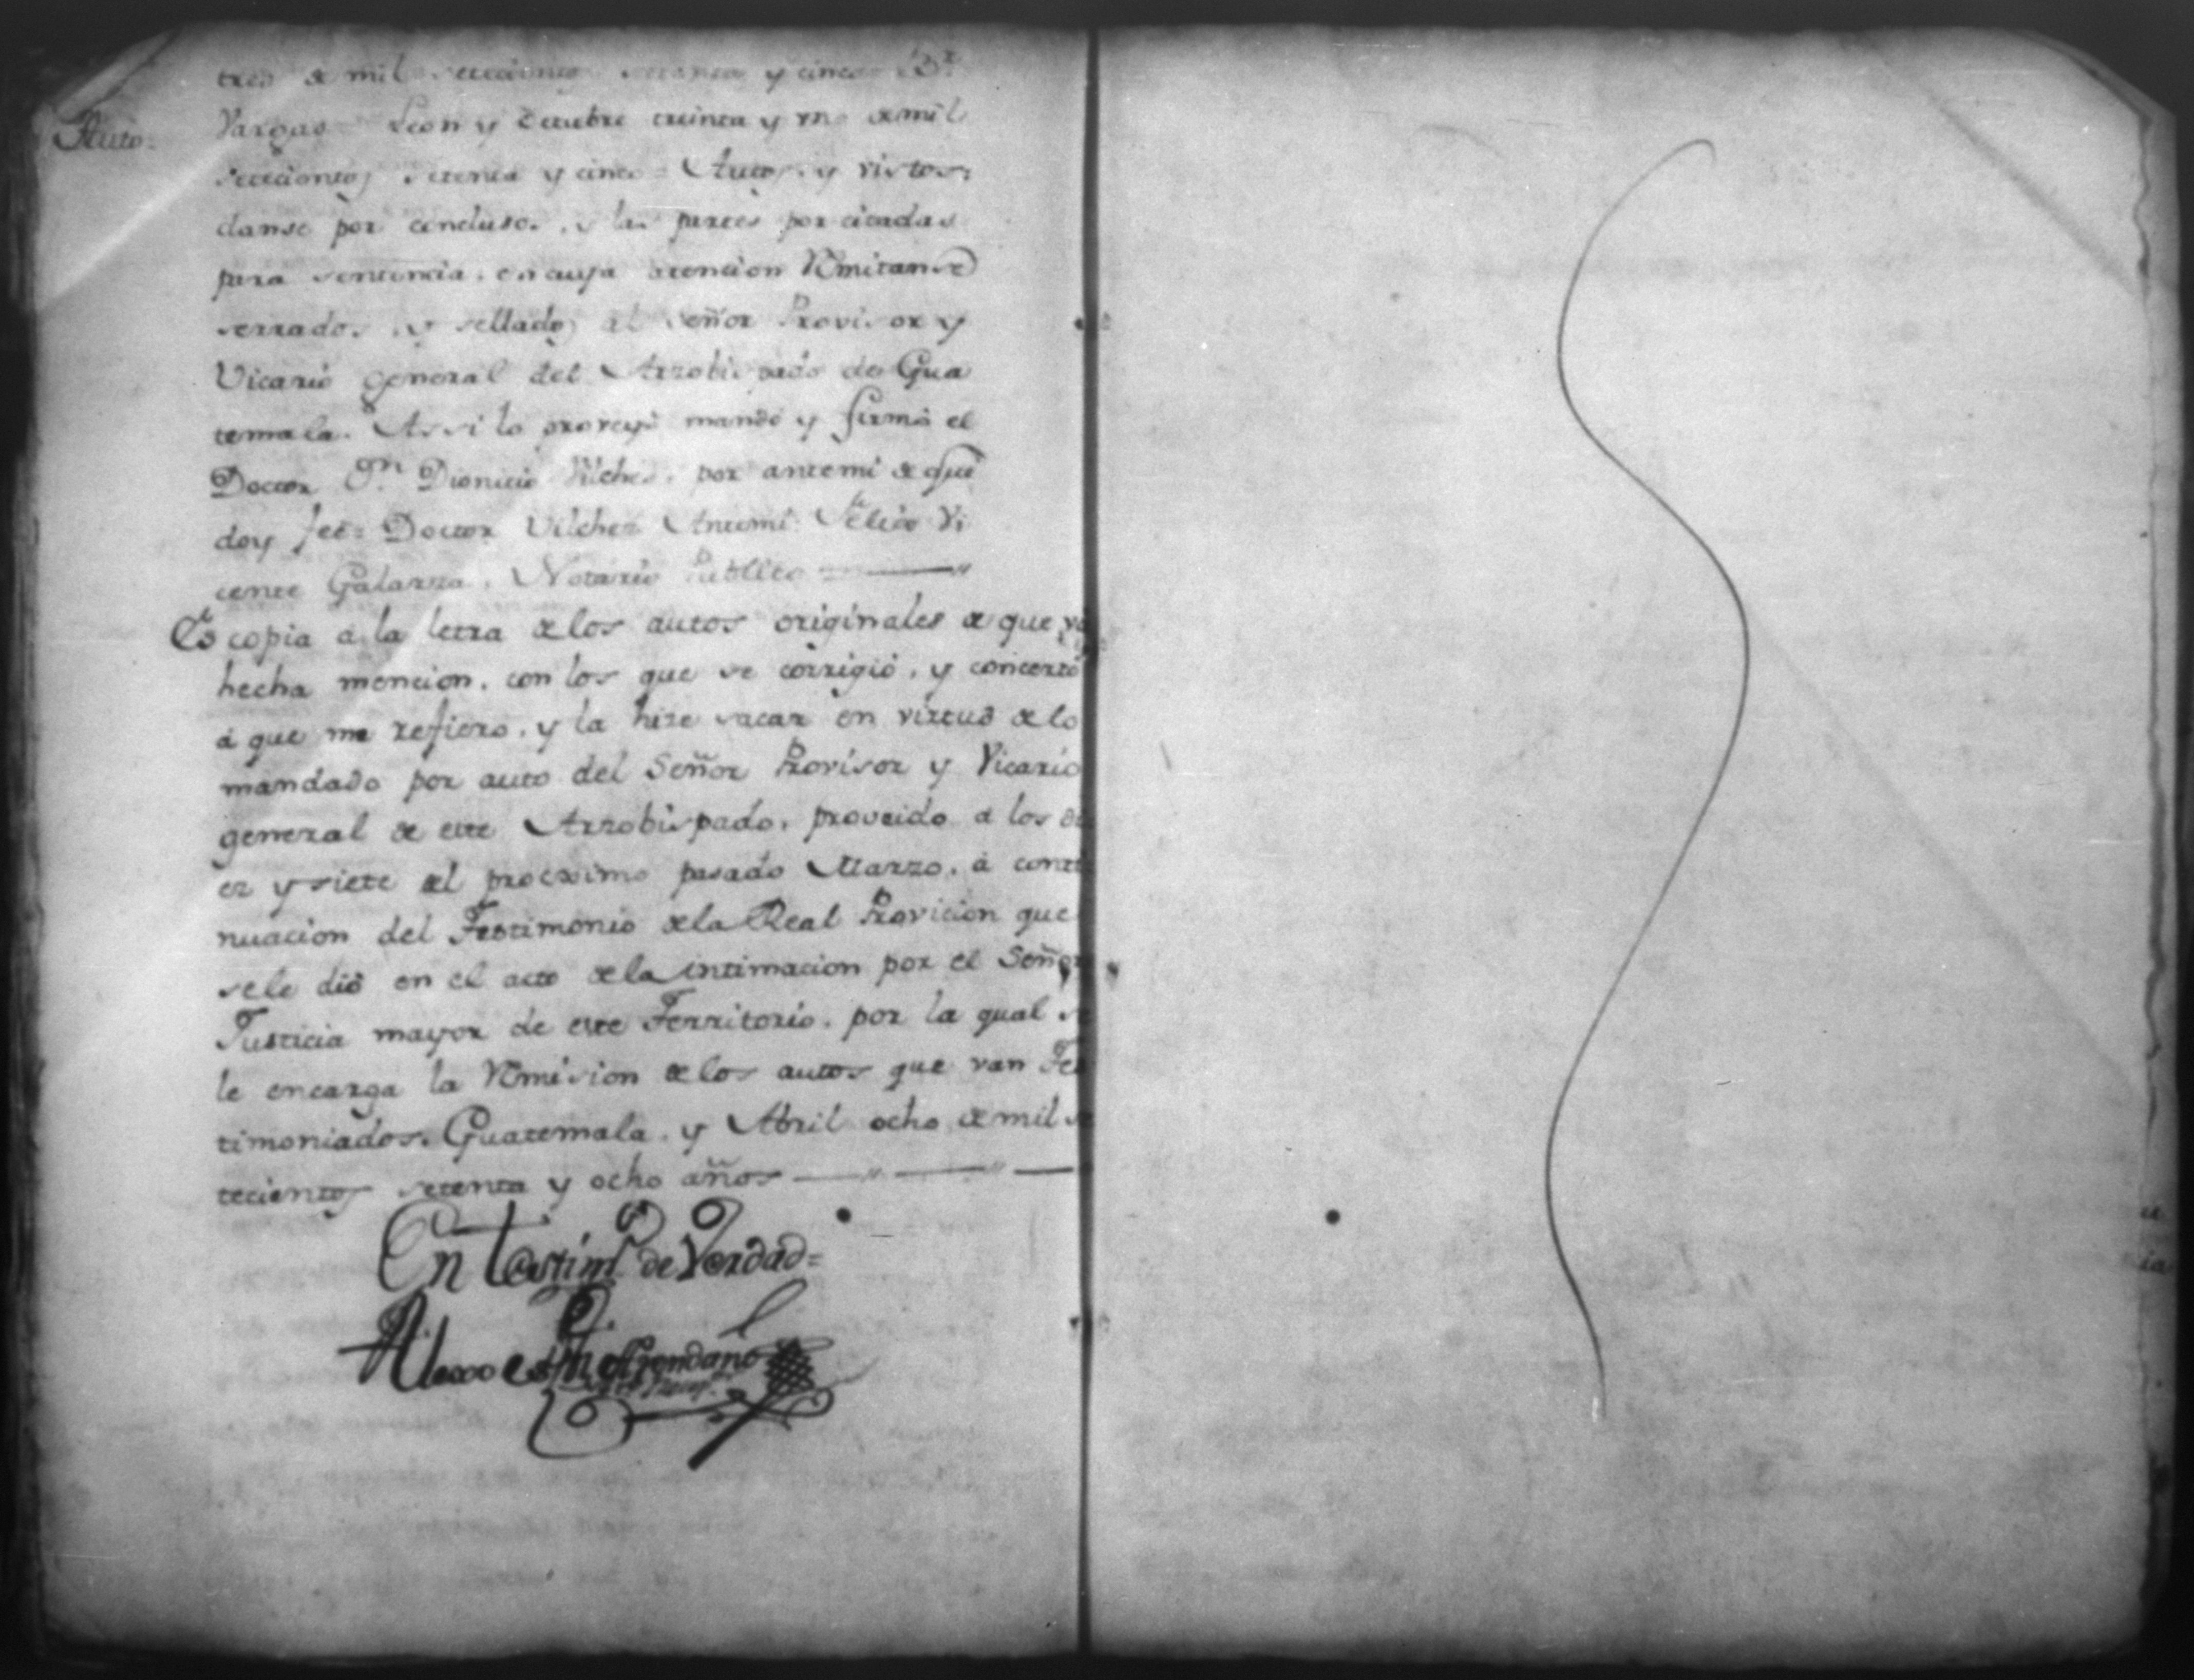 tres de mil setecientos setenta y cinco Br
Auto= Vargas Leon y Octubre treinta y uno de mil
setecientos setenta y cinco = Autos, y vistos:
danse por conclusos, y las partes por citadas
para sentencia, en cuya atencion Rmitanse
serrados, y sellados al Señor Provisor y
Vicario general del Arzobispado de Gua
temala. Assi lo proveyó mandó y firmó el
Doctor Dn Dionicio Vilches, por antemi de que
doy feé= Doctor Vilchez Antemi Felico Vi
cente Galarza, Notario Publico
Es copia á la letra de los autos originales de que vá
hecha mencion, con los que se corrigió, y concertó
á que me refiero, y la hize sacar en virtud de lo
mandado por auto del Señor Provisor y Vicario
general de este Arzobispado, proveido a los di
ez y siete del procximo pasado Marzo, á conti
nuacion del Testimonio de la Real Provicion que
sele dió en el acto de la intimacion por el Señor
Justicia mayor de este Territorio, por la qual se
le encarga la Rmision de los autos que van Tes
timoniados. Guatemala, y Abril ocho de mil se
tecientos setenta y ocho años
En testimo de Verdad=